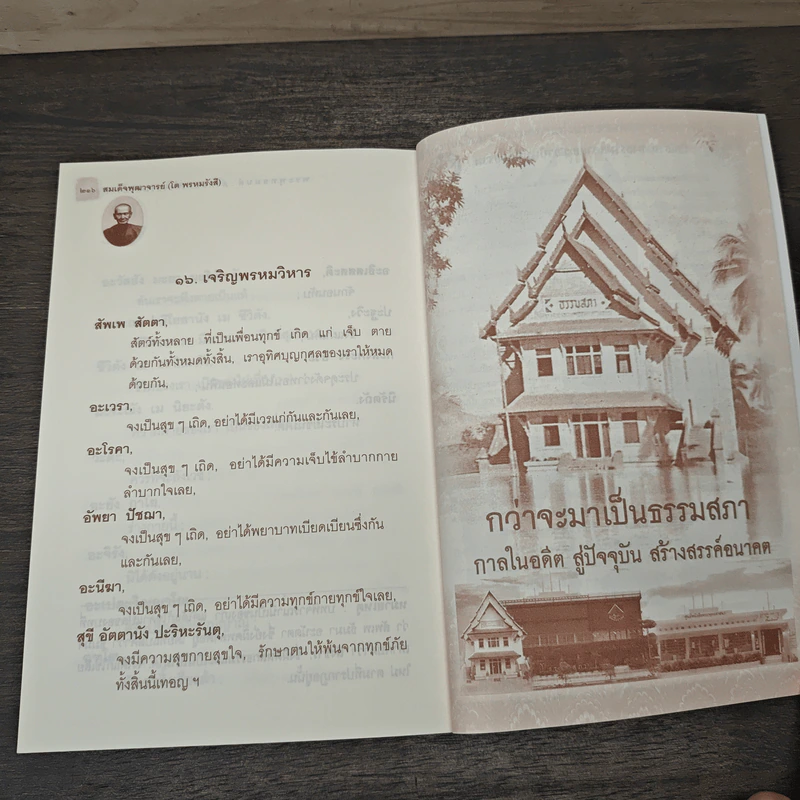 ๒๑๖ สมเด็จพุฒาจารย์ (โต พรหมรังสี)
๑๖. เจริญพรหมวิหาร
สัพเพ สัตตา,
สัตว์ทั้งหลาย ที่เป็นเพื่อนทุกข์ เกิด แก่ เจ็บ ตาย
ด้วยกันทั้งหมดทั้งสิ้น, เราอุทิศบุญกุศลของเราให้หมด
ด้วยกัน,
อะเวรา,
จงเป็นสุข ๆ เถิด, อย่าได้มีเวรแก่กันและกันเลย,
อะโรคา,
จงเป็นสุข ๆ เถิด, อย่าได้มีความเจ็บไข้ลำบากกาย
ลำบากใจเลย,
อัพยา ปัชฌา,
จงเป็นสุข ๆ เถิด, อย่าได้พยาบาทเบียดเบียนซึ่งกัน
และกันเลย,
อะนีฆา,
จงเป็นสุข ๆ เถิด, อย่าได้มีความทุกข์กายทุกข์ใจเลย,
สุขี อัตตานัง ปะริหะรันตุ,
จงมีความสุขกายสุขใจ, รักษาตนให้พ้นจากทุกข์ภัย
ทั้งสิ้นนี้เทอญ ฯ
ธรรมสภา
กว่าจะมาเป็นธรรมสภา
กาลในอดีต สู่ปัจจุบัน สร้างสรรค์อนาคต